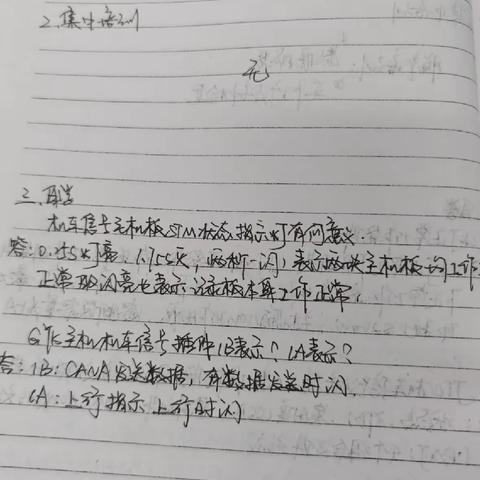 2.集中培训
无
三、自学
机车信号主机板STM状态指示灯有何意义:
答:0.25S灯亮 1.75S灭,两秒一闪,表示两块主机板均工作
正常 现闪亮也表示该板本身工作正常,
GYK主机机车信号插件1B表示?1A表示?
答:1B:CANA发送数据,有数据发送时闪.
1A:上行指示 上行时闪